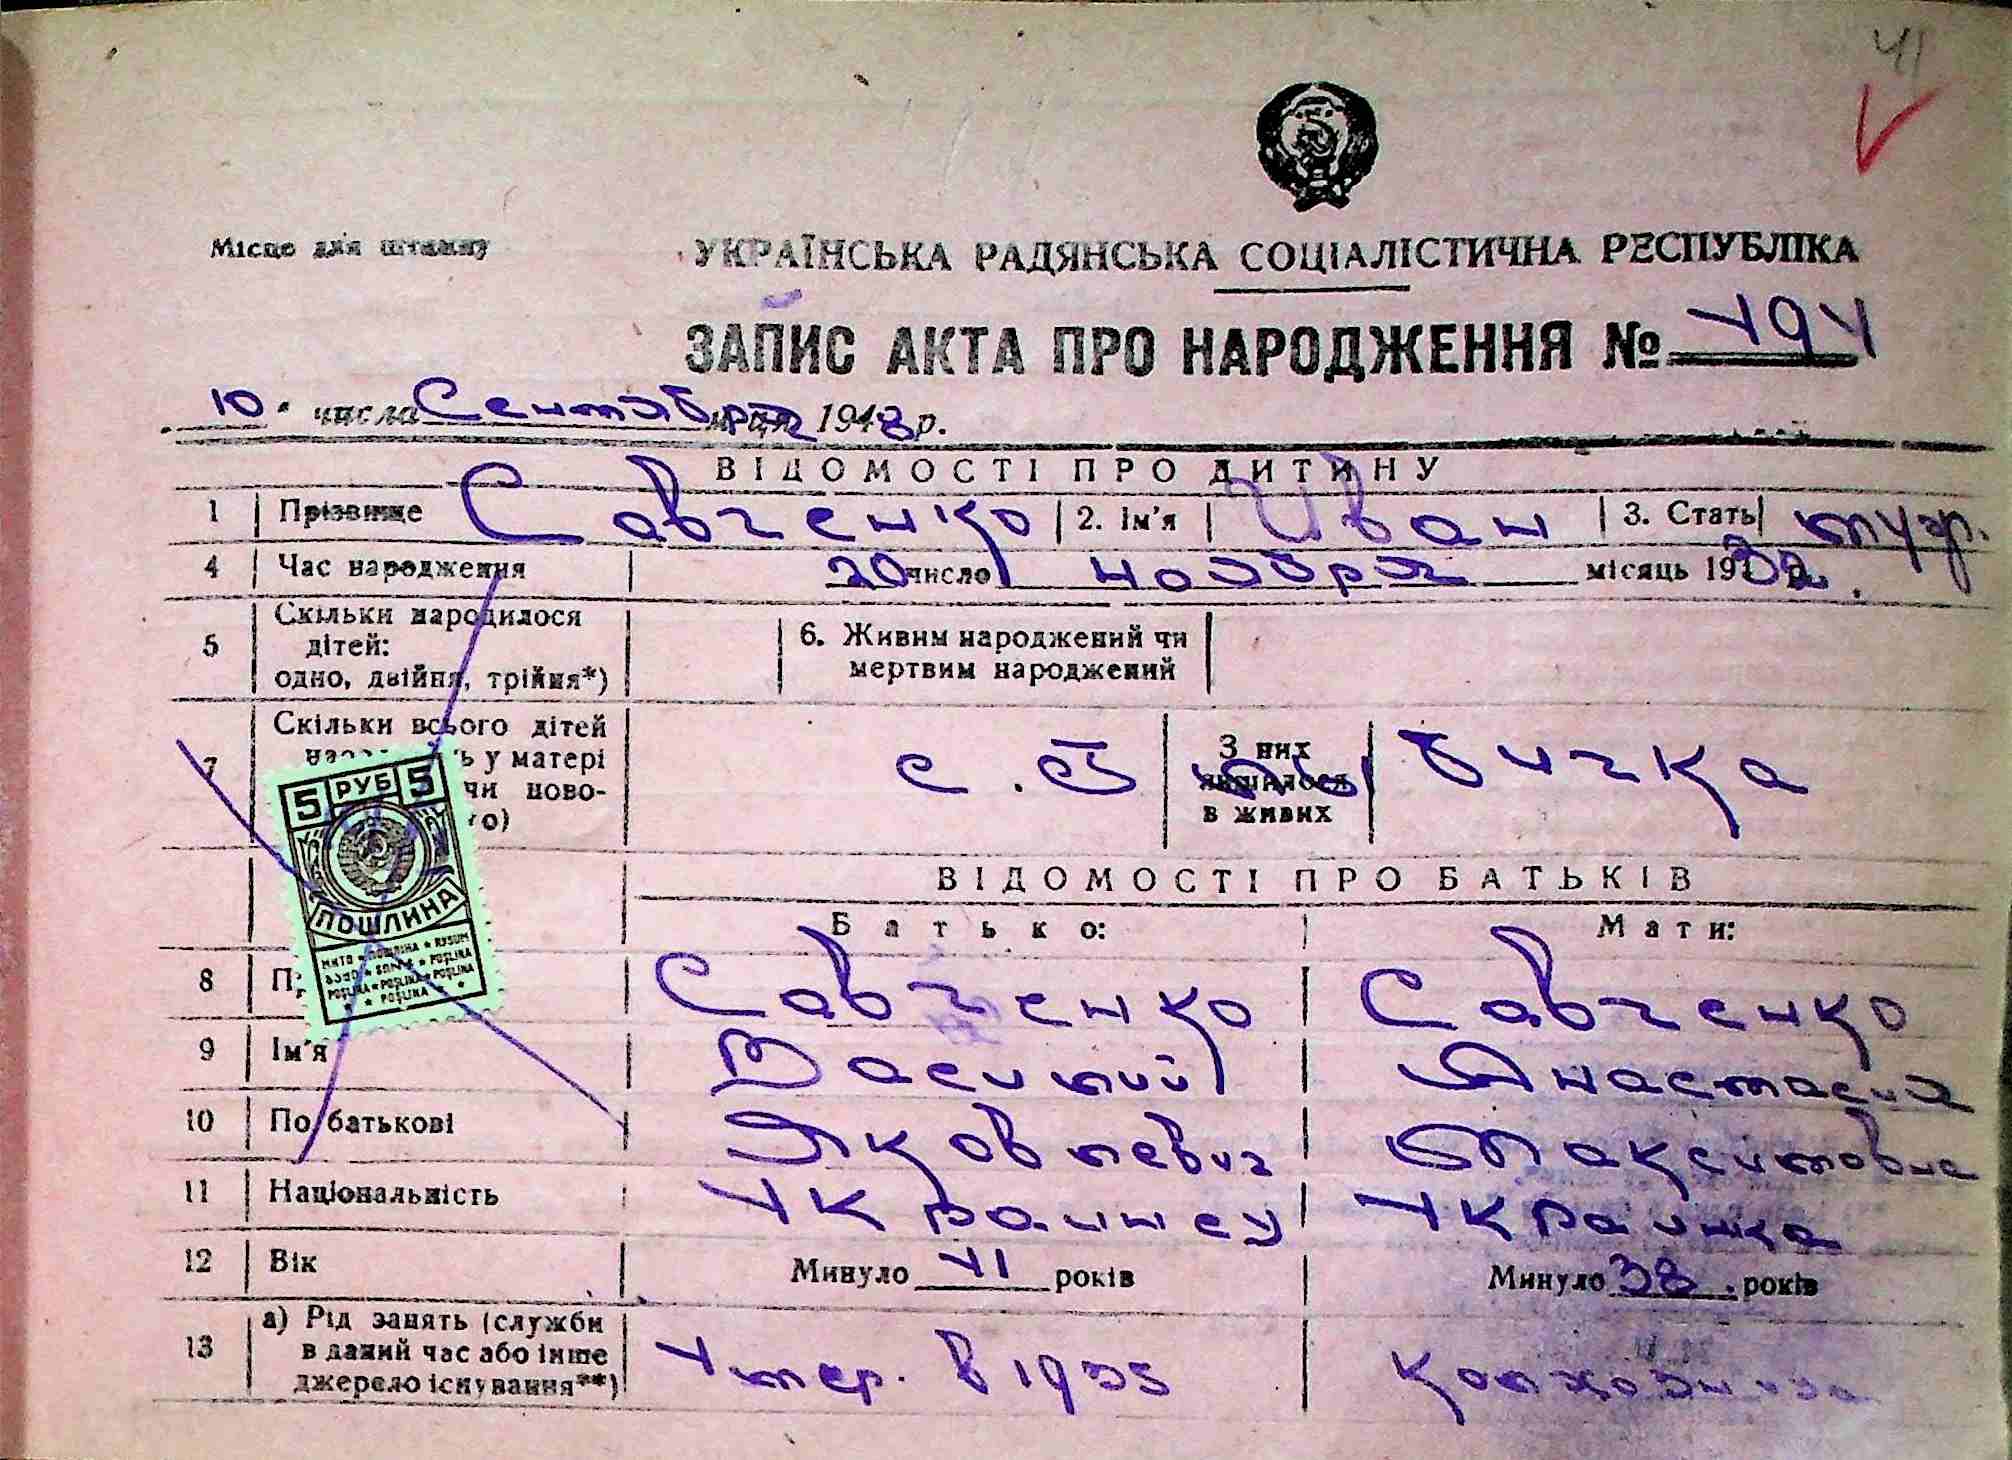 41
Місце для штампу
УКРАЇНСЬКА РАДЯНСЬКА СОЦІАЛІСТИЧНА РЕСПУБЛІКА
ЗАПИС АКТА ПРО НАРОДЖЕННЯ № 494
10 числа Сентября місяця 1948 р.
ВІДОМОСТІ ПРО ДИТИНУ
1 Прізвище Савченко 2. Ім'я Иван 3. Стать муж.
4 Час народження 20 число ноября місяць 1932 р.
5 Скільки народилося дітей: одно, двійня, трійня*) 6. Живим народжений чи мертвим народжений
7 Скільки всього дітей у матері с. З них лишилося в живих Бичка
5 РУБ 5
ПОШЛИНА
МИТО ПОШЛІНА RUSUM
POŞLINA
POŞLINA POŞLINA POŞLINA
POŞLINA
ВІДОМОСТІ ПРО БАТЬКІВ
Батько: Мати:
8 Савченко Савченко
9 Ім'я Василий Анастасия
10 По батькові Яковлевич Максимовна
11 Національність Украинец Украинка
12 Вік Минуло 41 років Минуло 38 років
13 а) Рід занять (служби в даний час або інше джерело існування**) Умер. в 1935 Колхозница